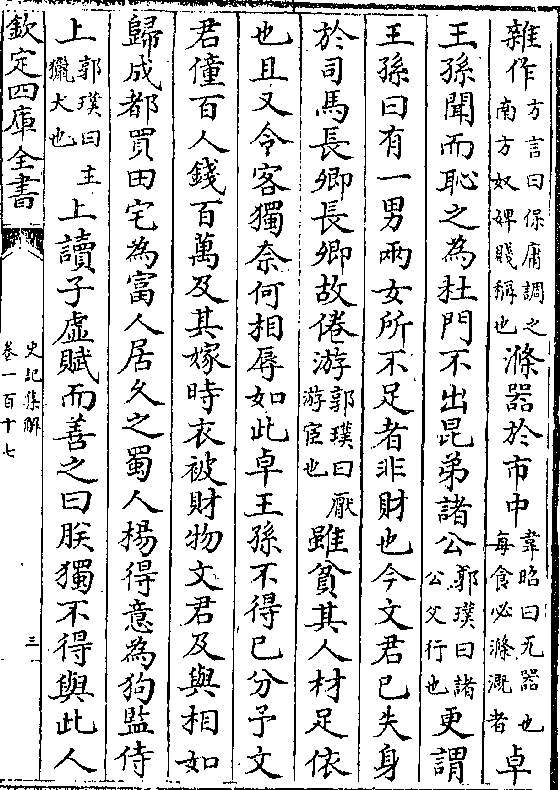 雜作方言曰保庸謂之南方奴婢賤稱也滌器於市中韋昭曰瓦器也每食必滌溉者卓
王孫聞而恥之為杜門不出昆弟諸公郭璞曰諸公父行也更謂
王孫曰有一男兩女所不足者非財也今文君已失身
於司馬長卿長卿故倦游郭璞曰厭游宦也雖貧其人材足依
也且又令客獨奈何相辱如此卓王孫不得已分予文
君僮百人錢百萬及其嫁時衣被財物文君乃與相如
歸成都買田宅為富人居久之蜀人楊得意為狗監侍
上郭璞曰主獵犬也上讀子虛賦而善之曰朕獨不得與此人
欽定四庫全書
史記集解
卷一百十七
三